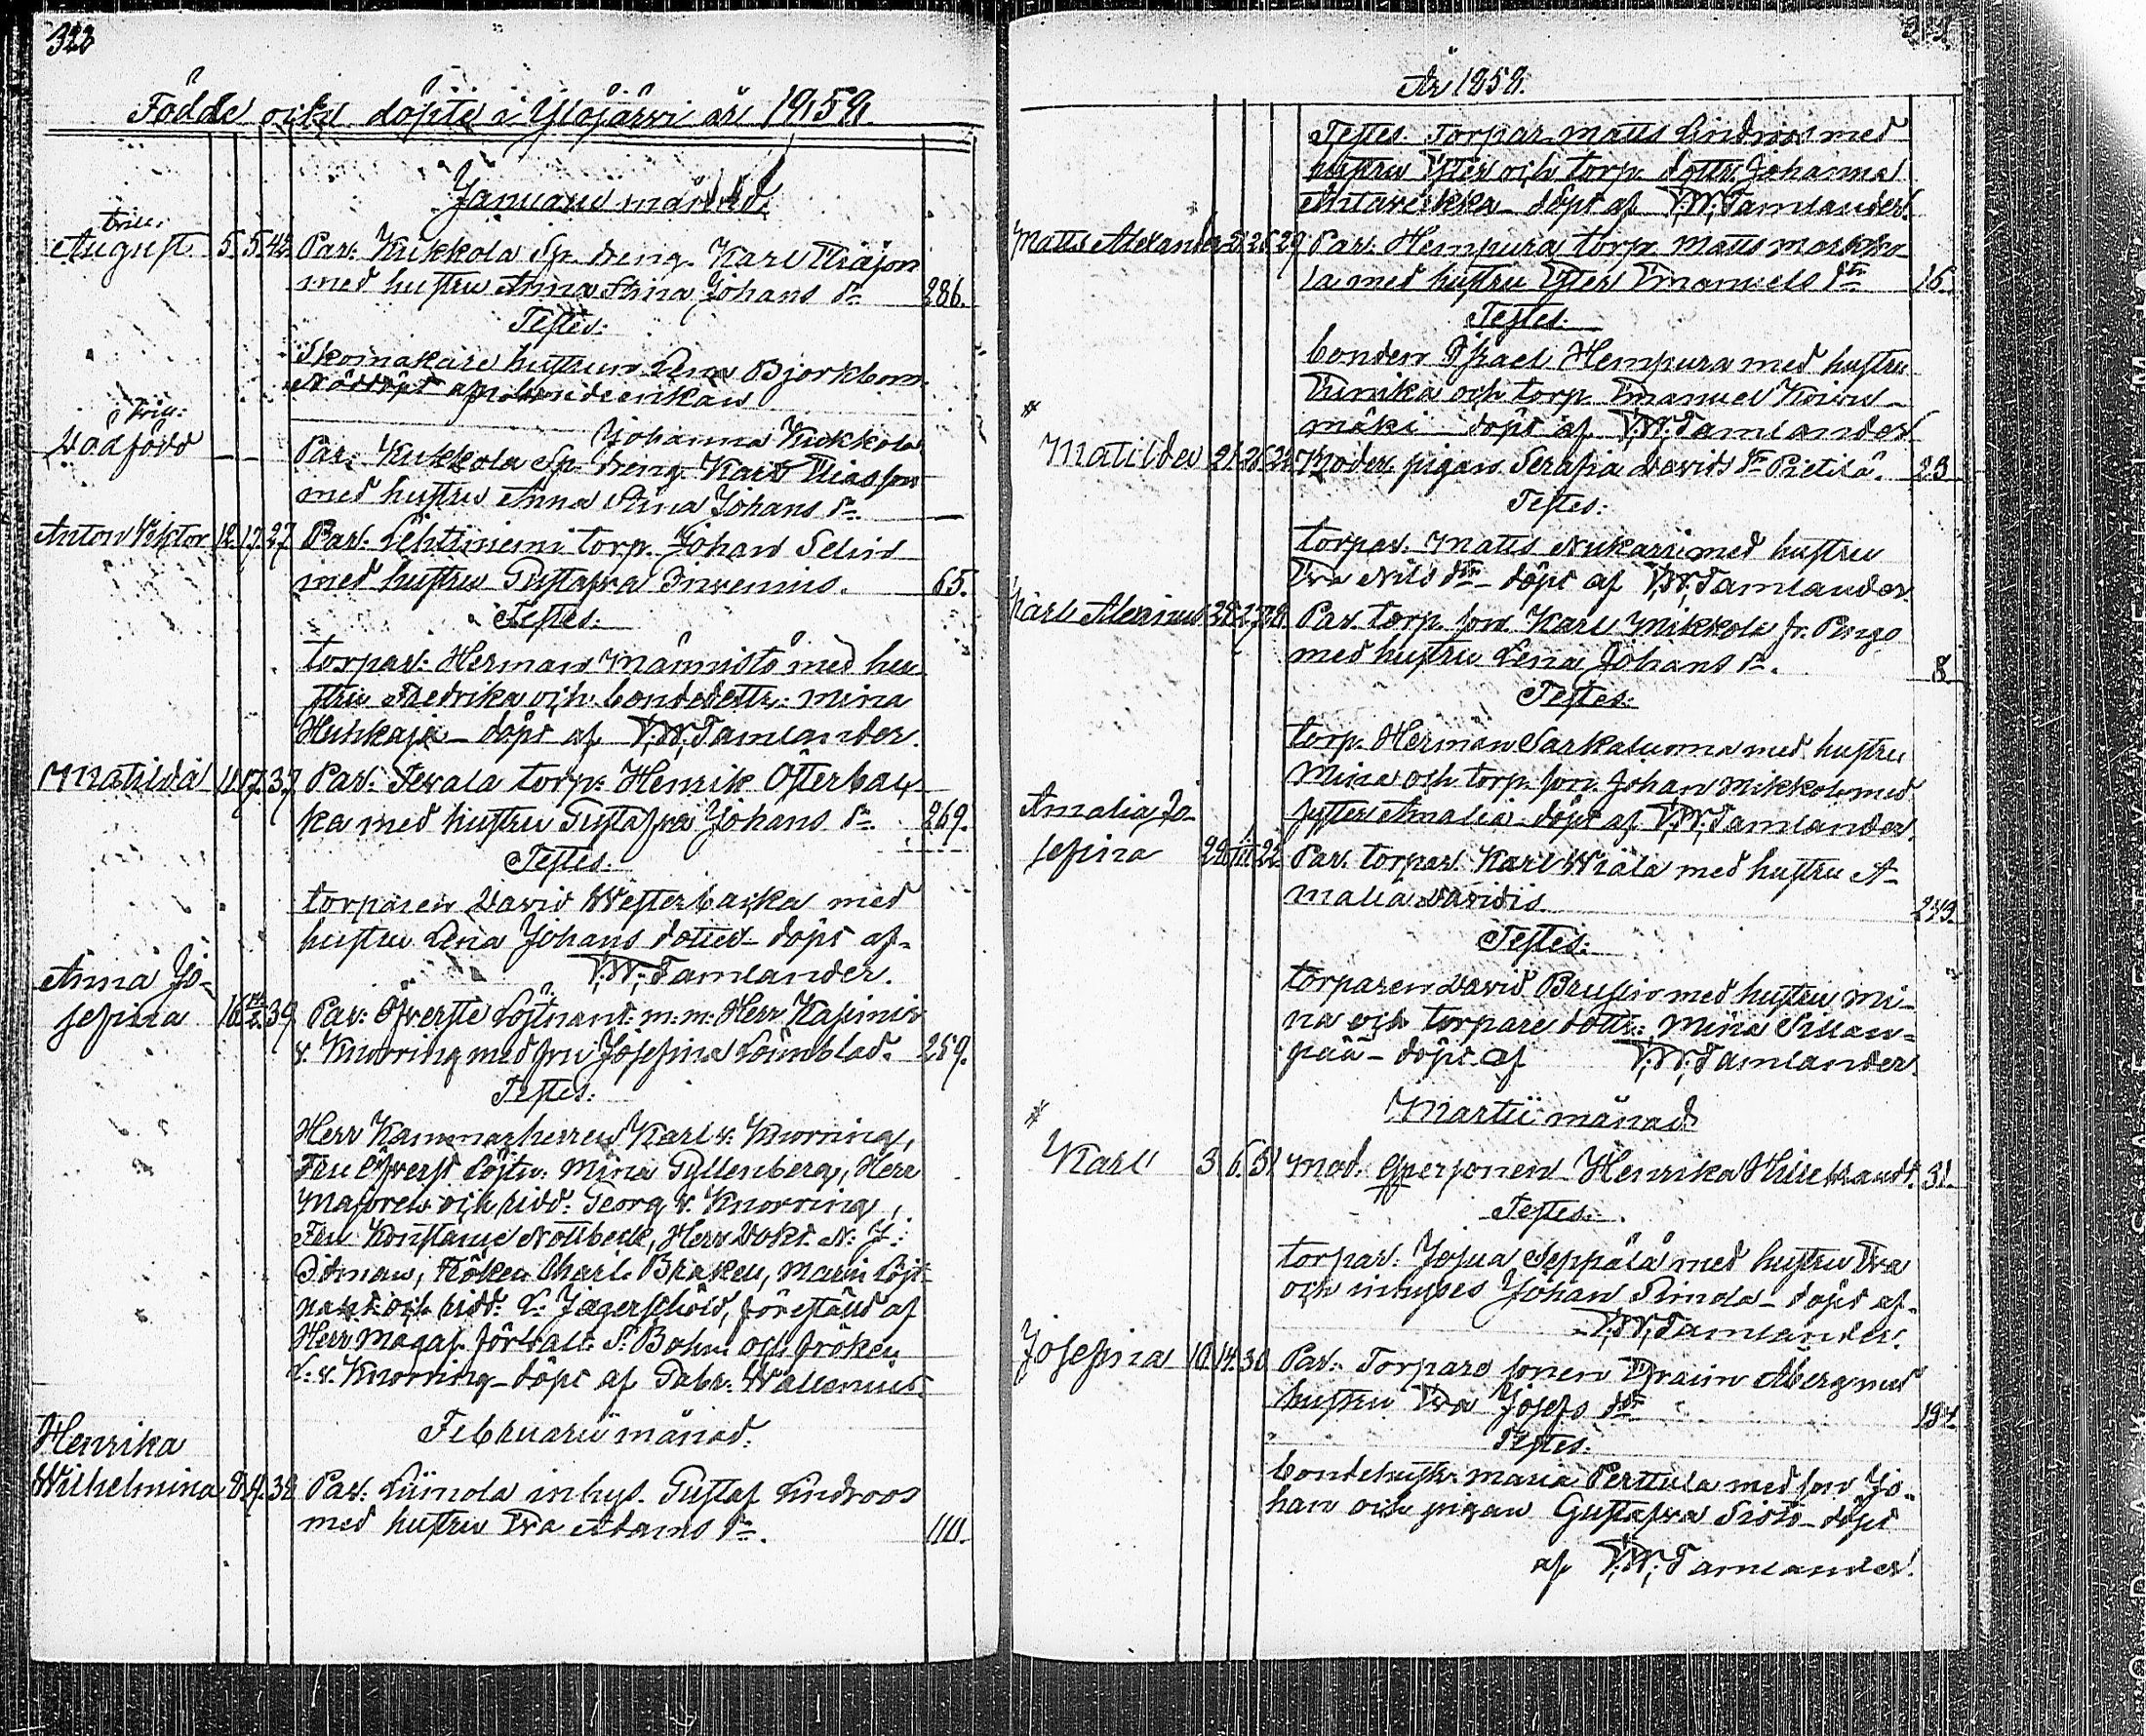 322
Födde och döpte i Ylöjärvi år 1858.
Januarii månad.
tvill:
August 5. 5. 42. Par: Kukkola Sp. dreng. Karl Eliasson
med hustru Anna Stina Johans dr 286.
Testes:
Skomakare hustrun Lena Björkbom
Nöddöpt af bondeenkan
Johanna Kukkola
tvill:
Dödfödd — — Par: Kukkola Sp. dreng. Karl Eliasson
med hustru Anna Stina Johans dr —
Anton Viktor 12. 17. 27. Par: Lehtiniemi torp. Johan Selin
med hustru Gustafva Invenius. 65.
Testes:
torpar: Herman Männistö med hu
stru Fredrika och bondedottr: Mina
Huhkaja – döpt af V. W. Tamlander.
Matilda 11. 17. 37. Par: Tevala torp: Henrik Österbac
ka med hustru Gustafva Johans dr 269.
Testes:
torparen David Westerbacka med
hustru Lena Johans dotter – döpt af
V. W. Tamlander.
Anna Jo-
sefina 16. 39. Par: Öfverste Löjtnant: m: m: Herr Kasimir
v. Knorring med fru Josefina Lönnblad. 259.
Testes:
Herr Kammarherren Karl v. Knorring,
Fru Öfverst Löjtn: Mina Gyllenberg, Herr
Majoren och ridd: Georg v. Knorring,
Fru Konstance Nottbeck, Herr Dokt. N: J:
Fröken Charl. Braken, Marin Löjt
nant: och ridd: L: Jägersköld, förestånd af
Herr Magas. förvalt: S. Bohm och fröken
L. v. Knorring – döpt af Gabr. Wallenius.
Februarii månad.
Henrika
Wilhelmina 8. 9. 38. Par: Liinola inhys. Gustaf Lindroos
med hustru Eva Adams dr. 110.
År 1858.
Testes: Torpar. Matts Lindroos med
hustru Ester och torp. dottr. Johanna
Antaveikka – döpt af V. W. Tamlander.
Matts Alexander 25. 28. 29. Par: Hempura torp. Matts Markko-
la med hustru Ester Emanuels dtr 15.
Testes:
bonden Israel Hempura med hustru
Ulrika och torp. Emanuel Koivu-
mäki – döpt af V. W. Tamlander
Matilda 21. 26. 22. Moder. pigan Serafia Davids dr Pietilä. 23
Testes:
torpar. Matts Nukari med hustru
Eva Nils dtr – döpt af V. W. Tamlander.
Karl Alexius 25. 27. 28. Par. torp. son. Karl Mikkola fr. Pengo
med hustru Lena Johans dr. 8.
Testes:
torp. Herman Sarkaluoma med hustru
Mina och torp. son. Johan Mikkola med
syster Amalia – döpt af V. W. Tamlander.
Amalia Jo
sefina 22. 22. Par. torpar. Karl Wiala med hustru A-
malia Davidis 249.
Testes:
torparen David Brusin med hustru Mi-
na och torpare dottr: Mina Sillan-
pää – döpt af V. W. Tamlander.
Martii månad
Karl 3. 6. 31. Mod. qpersonen Henrika Hildebrandt. 31.
Testes:
torpar. Josua Seppälä med hustru Eva
och inhyses Johan Rinola – döpt af
V. W. Tamlander.
Josefina 10. 14. 30. Par: Torpare sonen Efraim Åberg med
hustru Eva Josefs dtr 194.
Testes:
bondehustr. Maria Perttula med son Jo-
han och pigan Gustafva Sisto – döpt
af V. W. Tamlander.